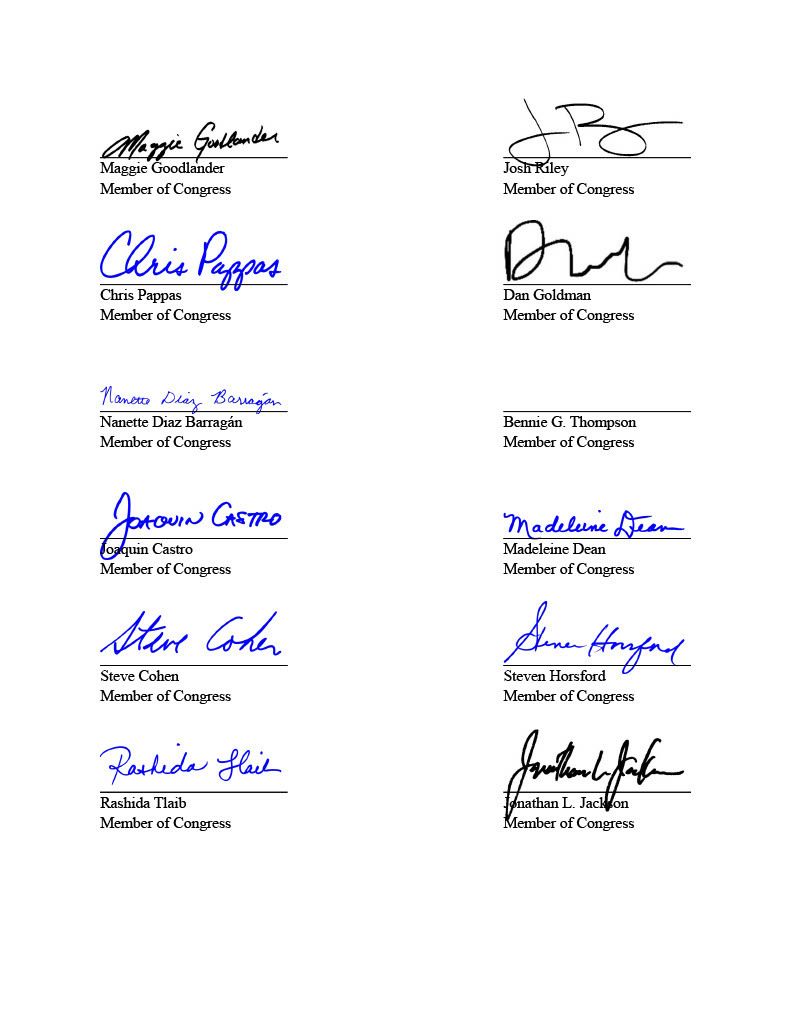 Maggie Goodlander
Maggie Goodlander
Member of Congress
Josh Riley
Member of Congress
Chris Pappas
Chris Pappas
Member of Congress
Dan Goldman
Member of Congress
Nanette Diaz Barragán
Nanette Diaz Barragán
Member of Congress
Bennie G. Thompson
Member of Congress
Joaquin Castro
Joaquin Castro
Member of Congress
Madeleine Dean
Madeleine Dean
Member of Congress
Steve Cohen
Steve Cohen
Member of Congress
Steven Horsford
Steven Horsford
Member of Congress
Rashida Tlaib
Rashida Tlaib
Member of Congress
Jonathan L. Jackson
Jonathan L. Jackson
Member of Congress